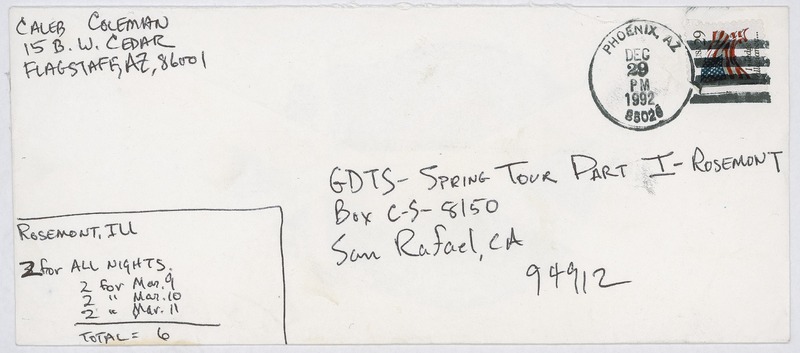 CALEB COLEMAN
15 B. W. CEDAR
FLAGSTAFF, AZ, 86001
PHOENIX, AZ
DEC
29
PM
1992
29
GDTS- SPRING TOUR PART I- ROSEMONT
Box C-S-8150
San Rafael, CA
94912
ROSEMONT, Ill
2 for ALL NIGHTS.
2 for Mar. 9
2 " Mar. 10
2 " Mar. 11
TOTAL = 6